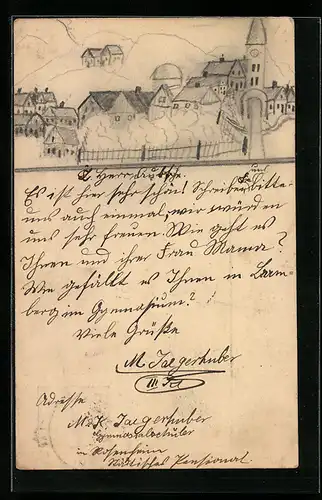 L. Herr
Es ist hier sehr schön! Schreiben Sie uns bitte
uns auch einmal, wir würden
uns sehr freuen. Wie geht es
Ihnen und ihrer Frau Mama?
Wie gefällt es Ihnen in Bam-
berg im Gymnasium?
Viele Grüße
M Jaegerhuber
III. Kl
Adresse
M. Jaegerhuber
Gymnasialschüler
in Rosenheim
Städtisches Pensionat.